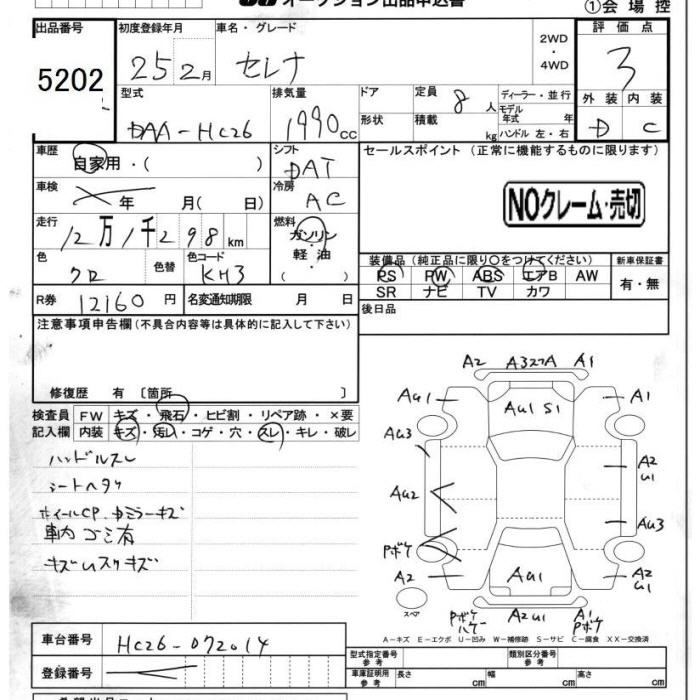 オークション出品申込書
①会場控
出品番号 初度登録年月 車名・グレード 2WD・4WD 評価点
5202 25 2月 セレナ 3
型式 排気量 ドア 定員 8人 ディーラー・並行 外装 内装
DAA-HC26 1990cc 形状 積載 kg モデル年式 年 D C
ハンドル 左・右
車歴 自家用・( ) シフト DAT セールスポイント (正常に機能するものに限ります)
車検 年 月( 日) 冷房 AC
NOクレーム・売切
走行 12万1千298km 燃料 ガソリン・軽油( )
色 クロ 色替 色コード KH3
装備品(純正品に限り○をつけてください) 新車保証書
PS PW ABS エアB AW 有・無
SR ナビ TV カワ
R券 12160円 名変通知期限 月 日
後日品
注意事項申告欄(不具合内容等は具体的に記入して下さい)
修復歴 有〔箇所 〕
検査員 FW キズ・飛石・ヒビ割・リペア跡・×要
記入欄 内装 キズ・汚れ・コゲ・穴・スレ・キレ・破レ
ハンドルスレ
シートヘタリ
ホイールCP.ドミラーキズ
車内ゴミ有
キズUスリキズ
A2 A327A A1
AU1 AU1 S1 A1
AU3 A2 U1
AU2 AU3
Pボケ
A2 AU1 A2 U1
スペア
Pボケ ハゲー A2U1 A1 Pボケ
A-キズ E-エクボ U-凹み W-補修跡 S-サビ C-腐食 XX-交換済
車台番号 HC26-072014
登録番号
型式指定番号 参考 類別区分番号 参考
車庫証明用 参考 長さ cm 幅 cm 高さ cm